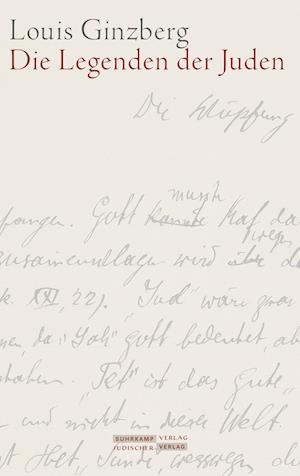 Louis Ginzberg
Die Legenden der Juden
Die Schöpfung
musste
fangen. Gott konnte Kaf da
wegen
zusammenschlagen wird über de
k. XXI, 22). "Jud" wäre zwar
nen, da "Jah" Gott bedeutet, ab
staben. "Tet" ist das Gute,
und nicht in dieser Welt.
st Het, Sünde, deswegen die
SUHRKAMP VERLAG
JÜDISCHER VERLAG